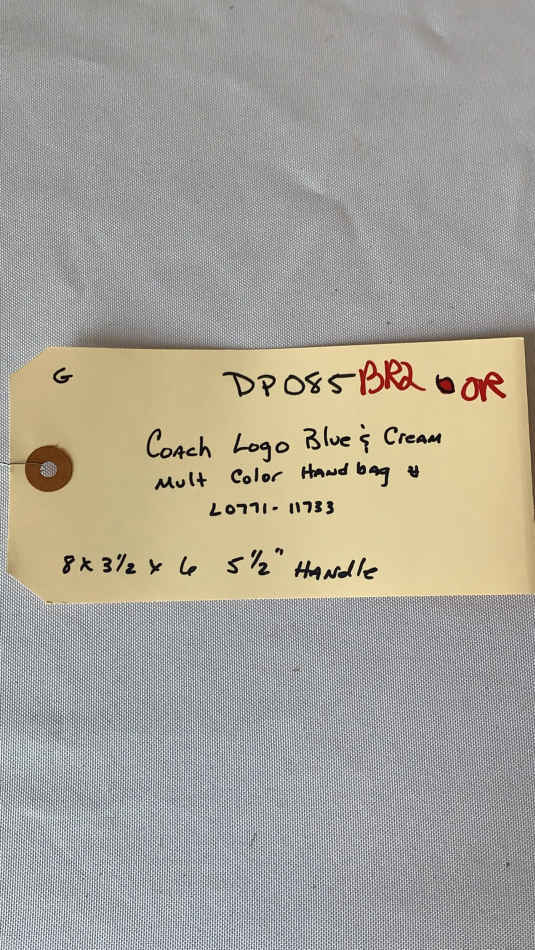 G DP085 BR2 OR
Coach Logo Blue & Cream
Mult Color Handbag #
L0771-11733
8 x 3 1/2 x 6 5 1/2" Handle